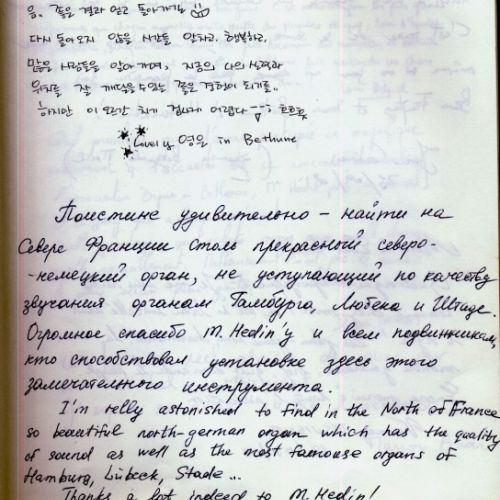 음. 좋은 결과 얻고 돌아가기를
다시 돌아오지 않을 시간들 알차고, 행복하고,
많은 사람들을 알아가며, 지금의 나의 실력과
위치를 잘 깨달을 수 있는 좋은 경험이 되기를..
하지만 이 오르간 치게 겁나게 어렵다 ㅜㅜ; 흐흐흑
Lovely 영은 in Bethune
Поистине удивительно – найти на
Севере Франции столь прекрасный северо-
-немецкий орган, не уступающий по качеству
звучания органам Гамбурга, Любека и Штаде.
Огромное спасибо M. Hedin'у и всем подвижникам,
кто способствовал установке здесь этого
замечательного инструмента.
I'm relly astonished to find in the North of France
so beautiful north-german organ which has the quality
of sound as well as the most famouse organs of
Hamburg, Lübeck, Stade...
Thanks a lot indeed to M. Hedin!